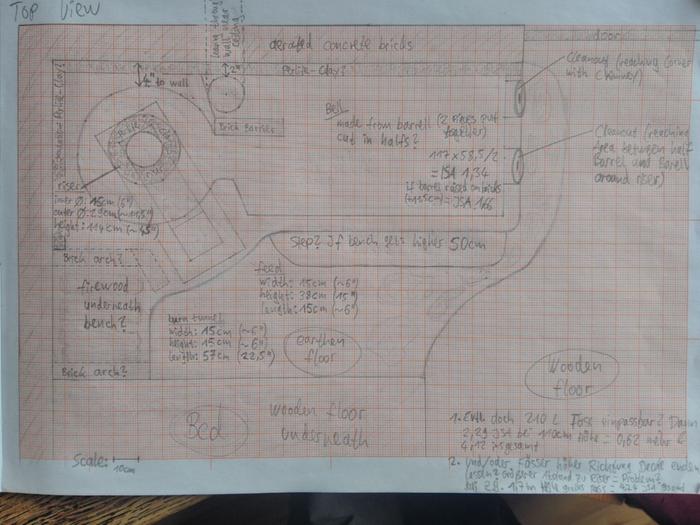 TOP VIEW
aerated concrete bricks
door
Perlite-Clay?
Perlite-Clay?
4" to wall
2"
Cleanout (reaching corner
with chimney)
Bell
made from barrell (2 pipes put
together)
cut in halfs?
Brick Barrier
117 x 58,5/2
= ISA 1,34
if barrel raised on bricks
(+15cm) = ISA 1,66
Cleanout (reaching
area between half
Barrel and Barell
around riser)
riser
inner Ø: 15cm (6")
outer Ø: 29cm (~11,5")
height: 114cm (~45")
Step? If bench gets higher 50cm
Brick arch?
firewood
underneath
bench?
Brick arch?
feed
width: 15cm (~6")
height: 38cm (15")
length: 15cm (~6")
burn tunnel
width: 15cm (~6")
height: 15cm (~6")
length: 57cm (22,5")
earthen
floor
Wooden
floor
Bed
wooden floor
underneath
Scale:
10cm
1. Evtl. doch 210 L Fass einpassbar? Dann
2,29 ISA bei 110cm Höhe = 0,62 mehr
4,12 insgesamt
2. und/oder Fässer höher Richtung Decke enden
lassen? Größerer Abstand zu Riser = Problem?